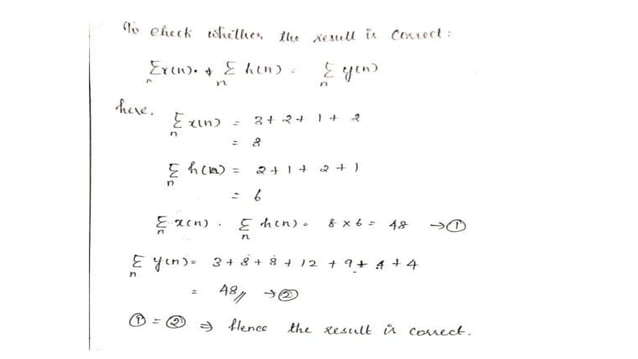 To check whether the result is correct:
Σ x(n) . Σ h(n) = Σ y(n)
n n n
here, Σ x(n) = 3 + 2 + 1 + 2
n
= 8
Σ h(n) = 2 + 1 + 2 + 1
n
= 6
Σ x(n) . Σ h(n) = 8 × 6 = 48 → ①
n n
Σ y(n) = 3 + 8 + 8 + 12 + 9 + 4 + 4
n
= 48// → ②
① = ② ⇒ Hence the result is correct.